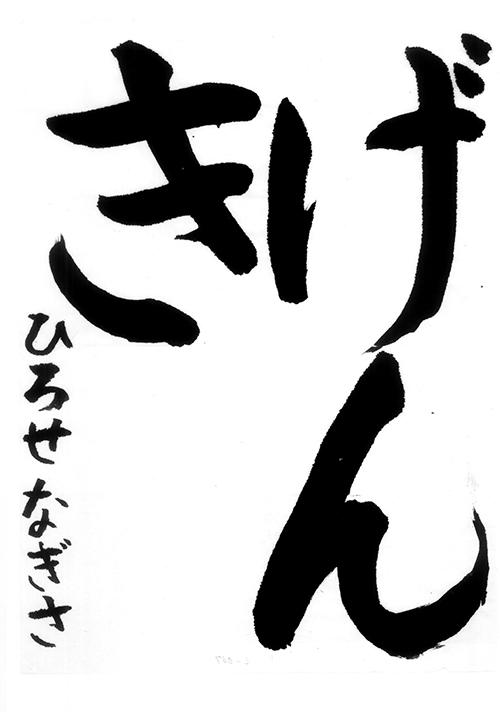 げん
き
ひろせなぎさ